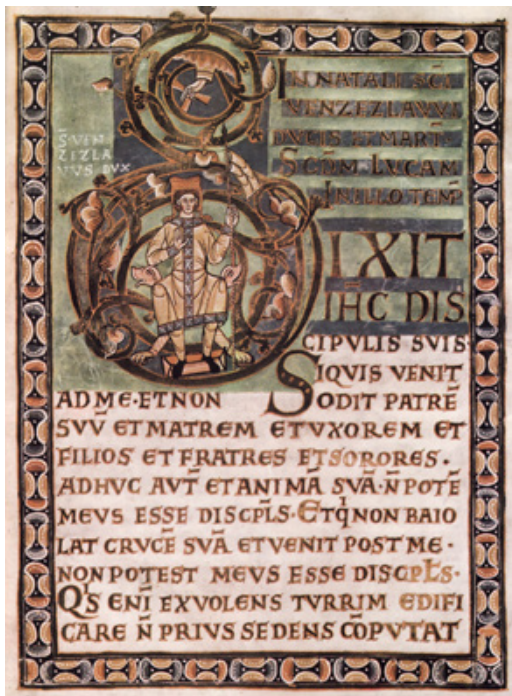 IN NATALI SC̄I
VENZEZLAVVI
DVCIS ET MART̄
SCD̄M·LVCAM
IN ILLO TEMP̄
S̄·VEN
ZIZLA
VVS DVX
DIXIT
IH̄C DIS
CIPVLIS SVIS·
SIQVIS VENIT
AD ME·ET NON ODIT PATRĒ
SVV̄ ET MATREM ET VXOREM ET
FILIOS ET FRATRES ET SORORES·
ADHVC AVT̄ ET ANIMĀ SVĀ·N̄ POTĒ
MEVS ESSE DISCPL̄S·Et qͥ NON BAIO
LAT CRVCĒ SVĀ ET VENIT POST ME·
NON POTEST MEVS ESSE DISCPL̄S·
QͥS ENĪ EX VOLENS TVRRIM EDIFI
CARE N̄ PRIVS SEDENS CŌPVTAT